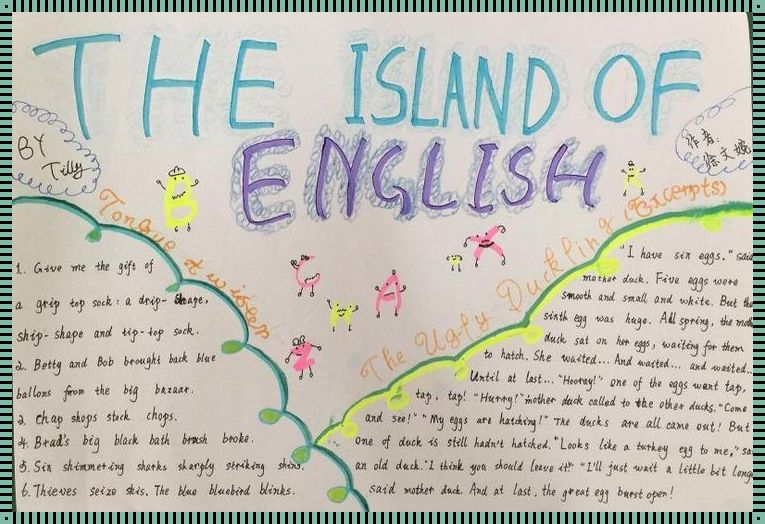 THE ISLAND OF
ENGLISH
BY
Tilly
作者:
徐文婉
Tongue twister
1. Give me the gift of
a grip top sock: a drip-drape,
ship-shape and tip-top sock.
2. Betty and Bob brought back blue
ballons from the big bazaar.
3. Chap shops stock chops.
4. Brad's big black bath brush broke.
5. Six shimmering sharks sharply striking shins.
6. Thieves seize skis. The blue bluebird blinks.
The Ugly Duckling (Excerpts)
"I have six eggs." said
mother duck. Five eggs were
smooth and small and white. But the
sixth egg was huge. All spring, the mother
duck sat on her eggs, waiting for them
to hatch. She waited... And waited... and waited...
Until at last... "Hooray!" one of the eggs went tap,
tap, tap! "Hurry!" mother duck called to the other ducks. "Come
and see!" "My eggs are hatching!" The ducks are all came out! But
one of duck is still hadn't hatched. "Looks like a turkey egg to me," said
an old duck. "I think you should leave it!" "I'll just wait a little bit longer
said mother duck. And at last, the great egg burst open!